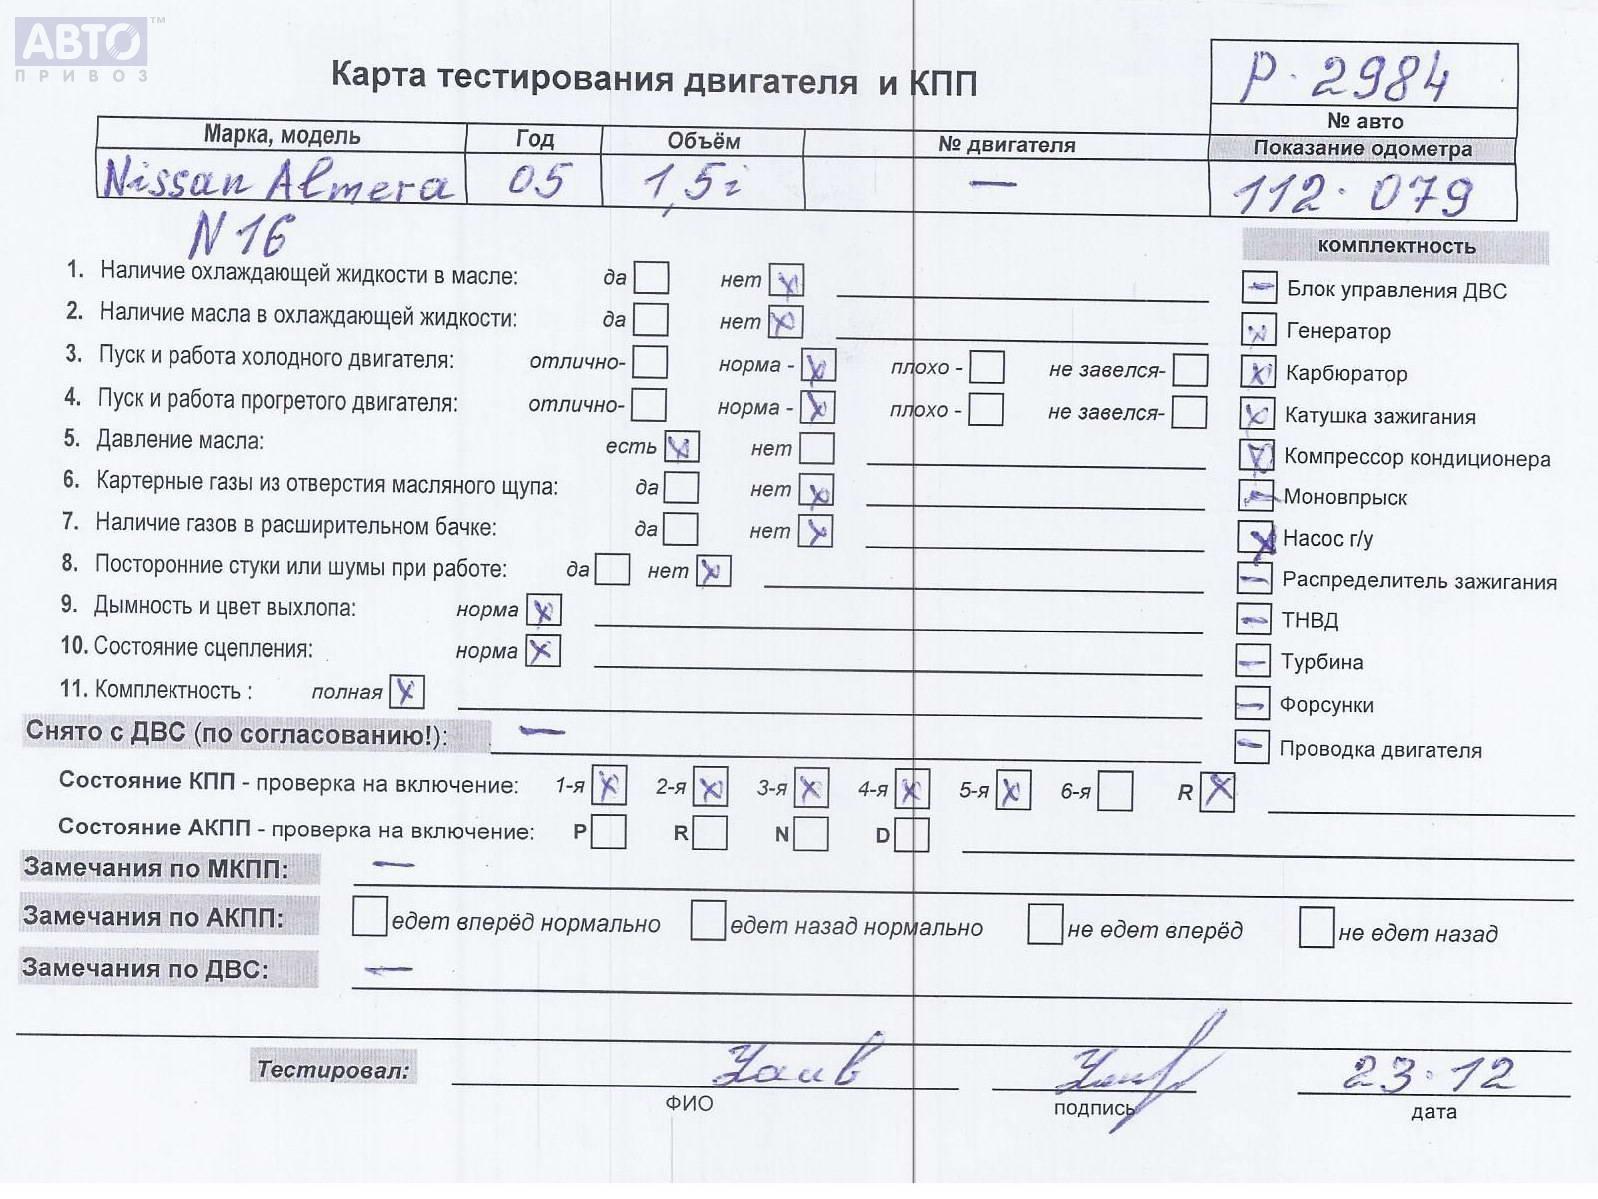 АВТО™
ПРИВОЗ
Карта тестирования двигателя и КПП
Р-2984
№ авто
Марка, модель Год Объём № двигателя Показание одометра
Nissan Almera 05 1,5i — 112.079
N16
комплектность
1. Наличие охлаждающей жидкости в масле: да нет x
— Блок управления ДВС
2. Наличие масла в охлаждающей жидкости: да нет x
x Генератор
3. Пуск и работа холодного двигателя: отлично- норма - x плохо - не завелся-
x Карбюратор
4. Пуск и работа прогретого двигателя: отлично- норма - x плохо - не завелся-
x Катушка зажигания
5. Давление масла: есть x нет
x Компрессор кондиционера
6. Картерные газы из отверстия масляного щупа: да нет x
— Моновпрыск
7. Наличие газов в расширительном бачке: да нет x
x Насос г/у
8. Посторонние стуки или шумы при работе: да нет x
— Распределитель зажигания
9. Дымность и цвет выхлопа: норма x
— ТНВД
10. Состояние сцепления: норма x
— Турбина
11. Комплектность : полная x
— Форсунки
Снято с ДВС (по согласованию!): —
— Проводка двигателя
Состояние КПП - проверка на включение: 1-я x 2-я x 3-я x 4-я x 5-я x 6-я R x
Состояние АКПП - проверка на включение: P R N D
Замечания по МКПП: —
Замечания по АКПП: едет вперёд нормально едет назад нормально не едет вперёд не едет назад
Замечания по ДВС: —
Тестировал: 23.12
ФИО подпись дата